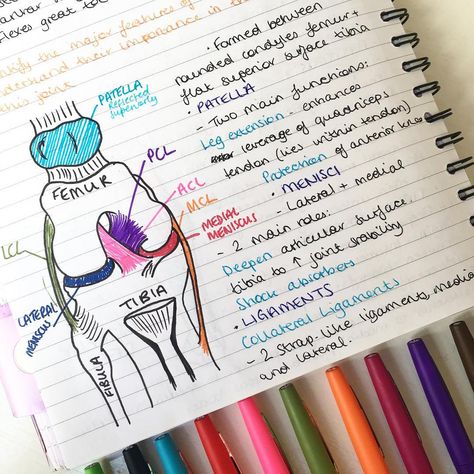 flexes great to
Identify the major features of
understand their importance in the
this joint
• Formed between
rounded condyles femur +
flat superior surface tibia
• PATELLA
- Two main functions:
Leg extension - enhances
leverage of quadriceps
tendon (lies within tendon)
Protection of anterior knee
• MENISCI
- Lateral + medial
- 2 main roles:
Deepen articular surface
tibia to ↑ joint stability
Shock absorbers
• LIGAMENTS
Collateral Ligaments
- 2 strap-like ligaments, medial
and lateral.
PATELLA
Reflected
superiorly
PCL
FEMUR
ACL
MCL
MEDIAL
MENISCUS
LCL
LATERAL
MENISCUS
TIBIA
FIBULA